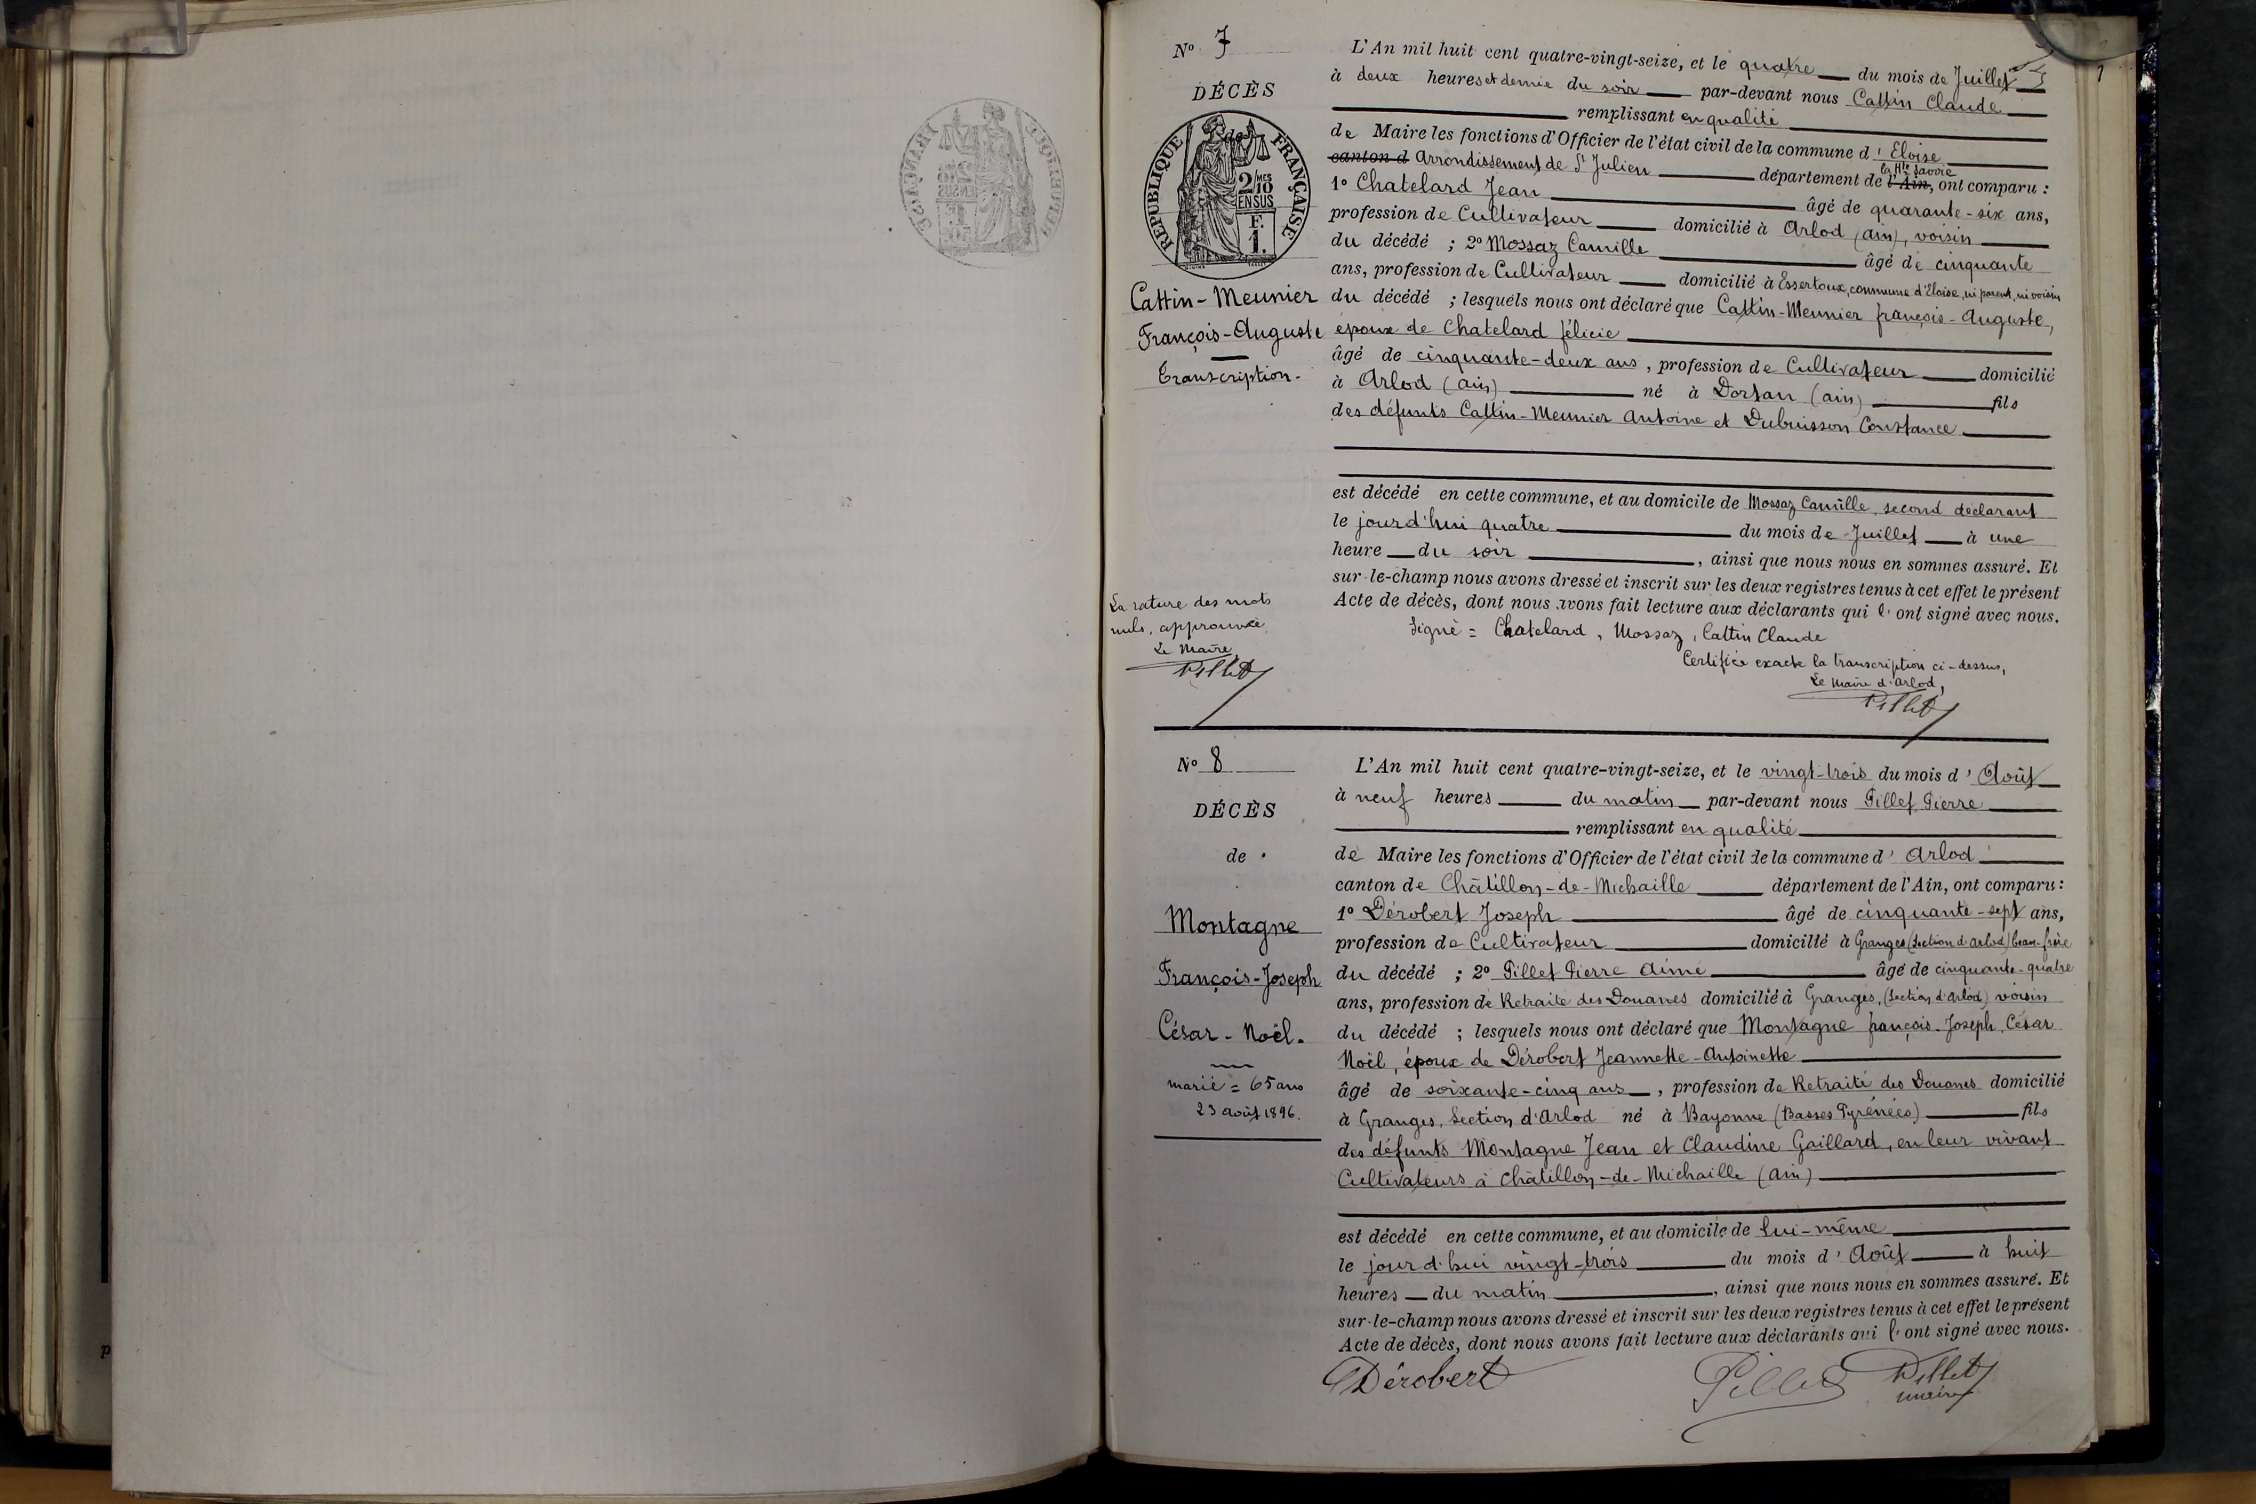 N° 7
DÉCÈS
de
RÉPUBLIQUE FRANÇAISE
2/10 MES
EN SUS
F.
1.
Cattin-Meunier
François-Auguste
Transcription.
La rature des mots
nuls, approuvée.
Le Maire,
Pillet
L'An mil huit cent quatre-vingt-seize, et le quatre du mois de Juillet
à deux heures et demie du soir par-devant nous Cattin Claude
remplissant en qualité
de Maire les fonctions d'Officier de l'état civil de la commune d'Eloise
canton d Arrondissement de St Julien département de l'Ain, la Hte Savoie ont comparu :
1° Chatelard Jean âgé de quarante-six ans,
profession de Cultivateur domicilié à Arlod (ain), voisin
du décédé ; 2° Mossaz Camille âgé de cinquante
ans, profession de Cultivateur domicilié à Essertoux, commune d'Eloise, ni parent, ni voisin
du décédé ; lesquels nous ont déclaré que Cattin-Meunier françois-Auguste,
époux de Chatelard félicie
âgé de cinquante-deux ans, profession de Cultivateur domicilié
à Arlod (ain) né à Dortan (ain) fils
des défunts Cattin-Meunier Antoine et Dubuisson Constance
est décédé en cette commune, et au domicile de Mossaz Camille, second déclarant
le jourd'hui quatre du mois de Juillet à une
heure du soir, ainsi que nous nous en sommes assuré. Et
sur-le-champ nous avons dressé et inscrit sur les deux registres tenus à cet effet le présent
Acte de décès, dont nous avons fait lecture aux déclarants qui l'ont signé avec nous.
Signé = Chatelard, Mossaz, Cattin Claude
Certifiée exacte la transcription ci-dessus,
Le Maire d'Arlod,
Pillet
N° 8
DÉCÈS
de
Montagne
François-Joseph
César-Noël.
marié = 65 ans
23 août 1896.
L'An mil huit cent quatre-vingt-seize, et le vingt-trois du mois d'Août
à neuf heures du matin par-devant nous Pillet Pierre
remplissant en qualité
de Maire les fonctions d'Officier de l'état civil de la commune d'Arlod
canton de Châtillon-de-Michaille département de l'Ain, ont comparu :
1° Dérobert Joseph âgé de cinquante-sept ans,
profession de Cultivateur domicilié à Granges (Section d'Arlod) beau-frère
du décédé ; 2° Pillet Pierre Aimé âgé de cinquante-quatre
ans, profession de Retraité des Douanes domicilié à Granges, (Section d'Arlod) voisin
du décédé ; lesquels nous ont déclaré que Montagne françois-Joseph, César
Noël, époux de Dérobert Jeannette-Antoinette
âgé de soixante-cinq ans, profession de Retraité des Douanes domicilié
à Granges, Section d'Arlod né à Bayonne (Basses Pyrénées) fils
des défunts Montagne Jean et Claudine Gaillard, en leur vivant
Cultivateurs à Châtillon-de-Michaille (ain)
est décédé en cette commune, et au domicile de lui-même
le jourd'hui vingt-trois du mois d'Août à huit
heures du matin, ainsi que nous nous en sommes assuré. Et
sur-le-champ nous avons dressé et inscrit sur les deux registres tenus à cet effet le présent
Acte de décès, dont nous avons fait lecture aux déclarants qui l'ont signé avec nous.
Dérobert Pillet Pillet
maire